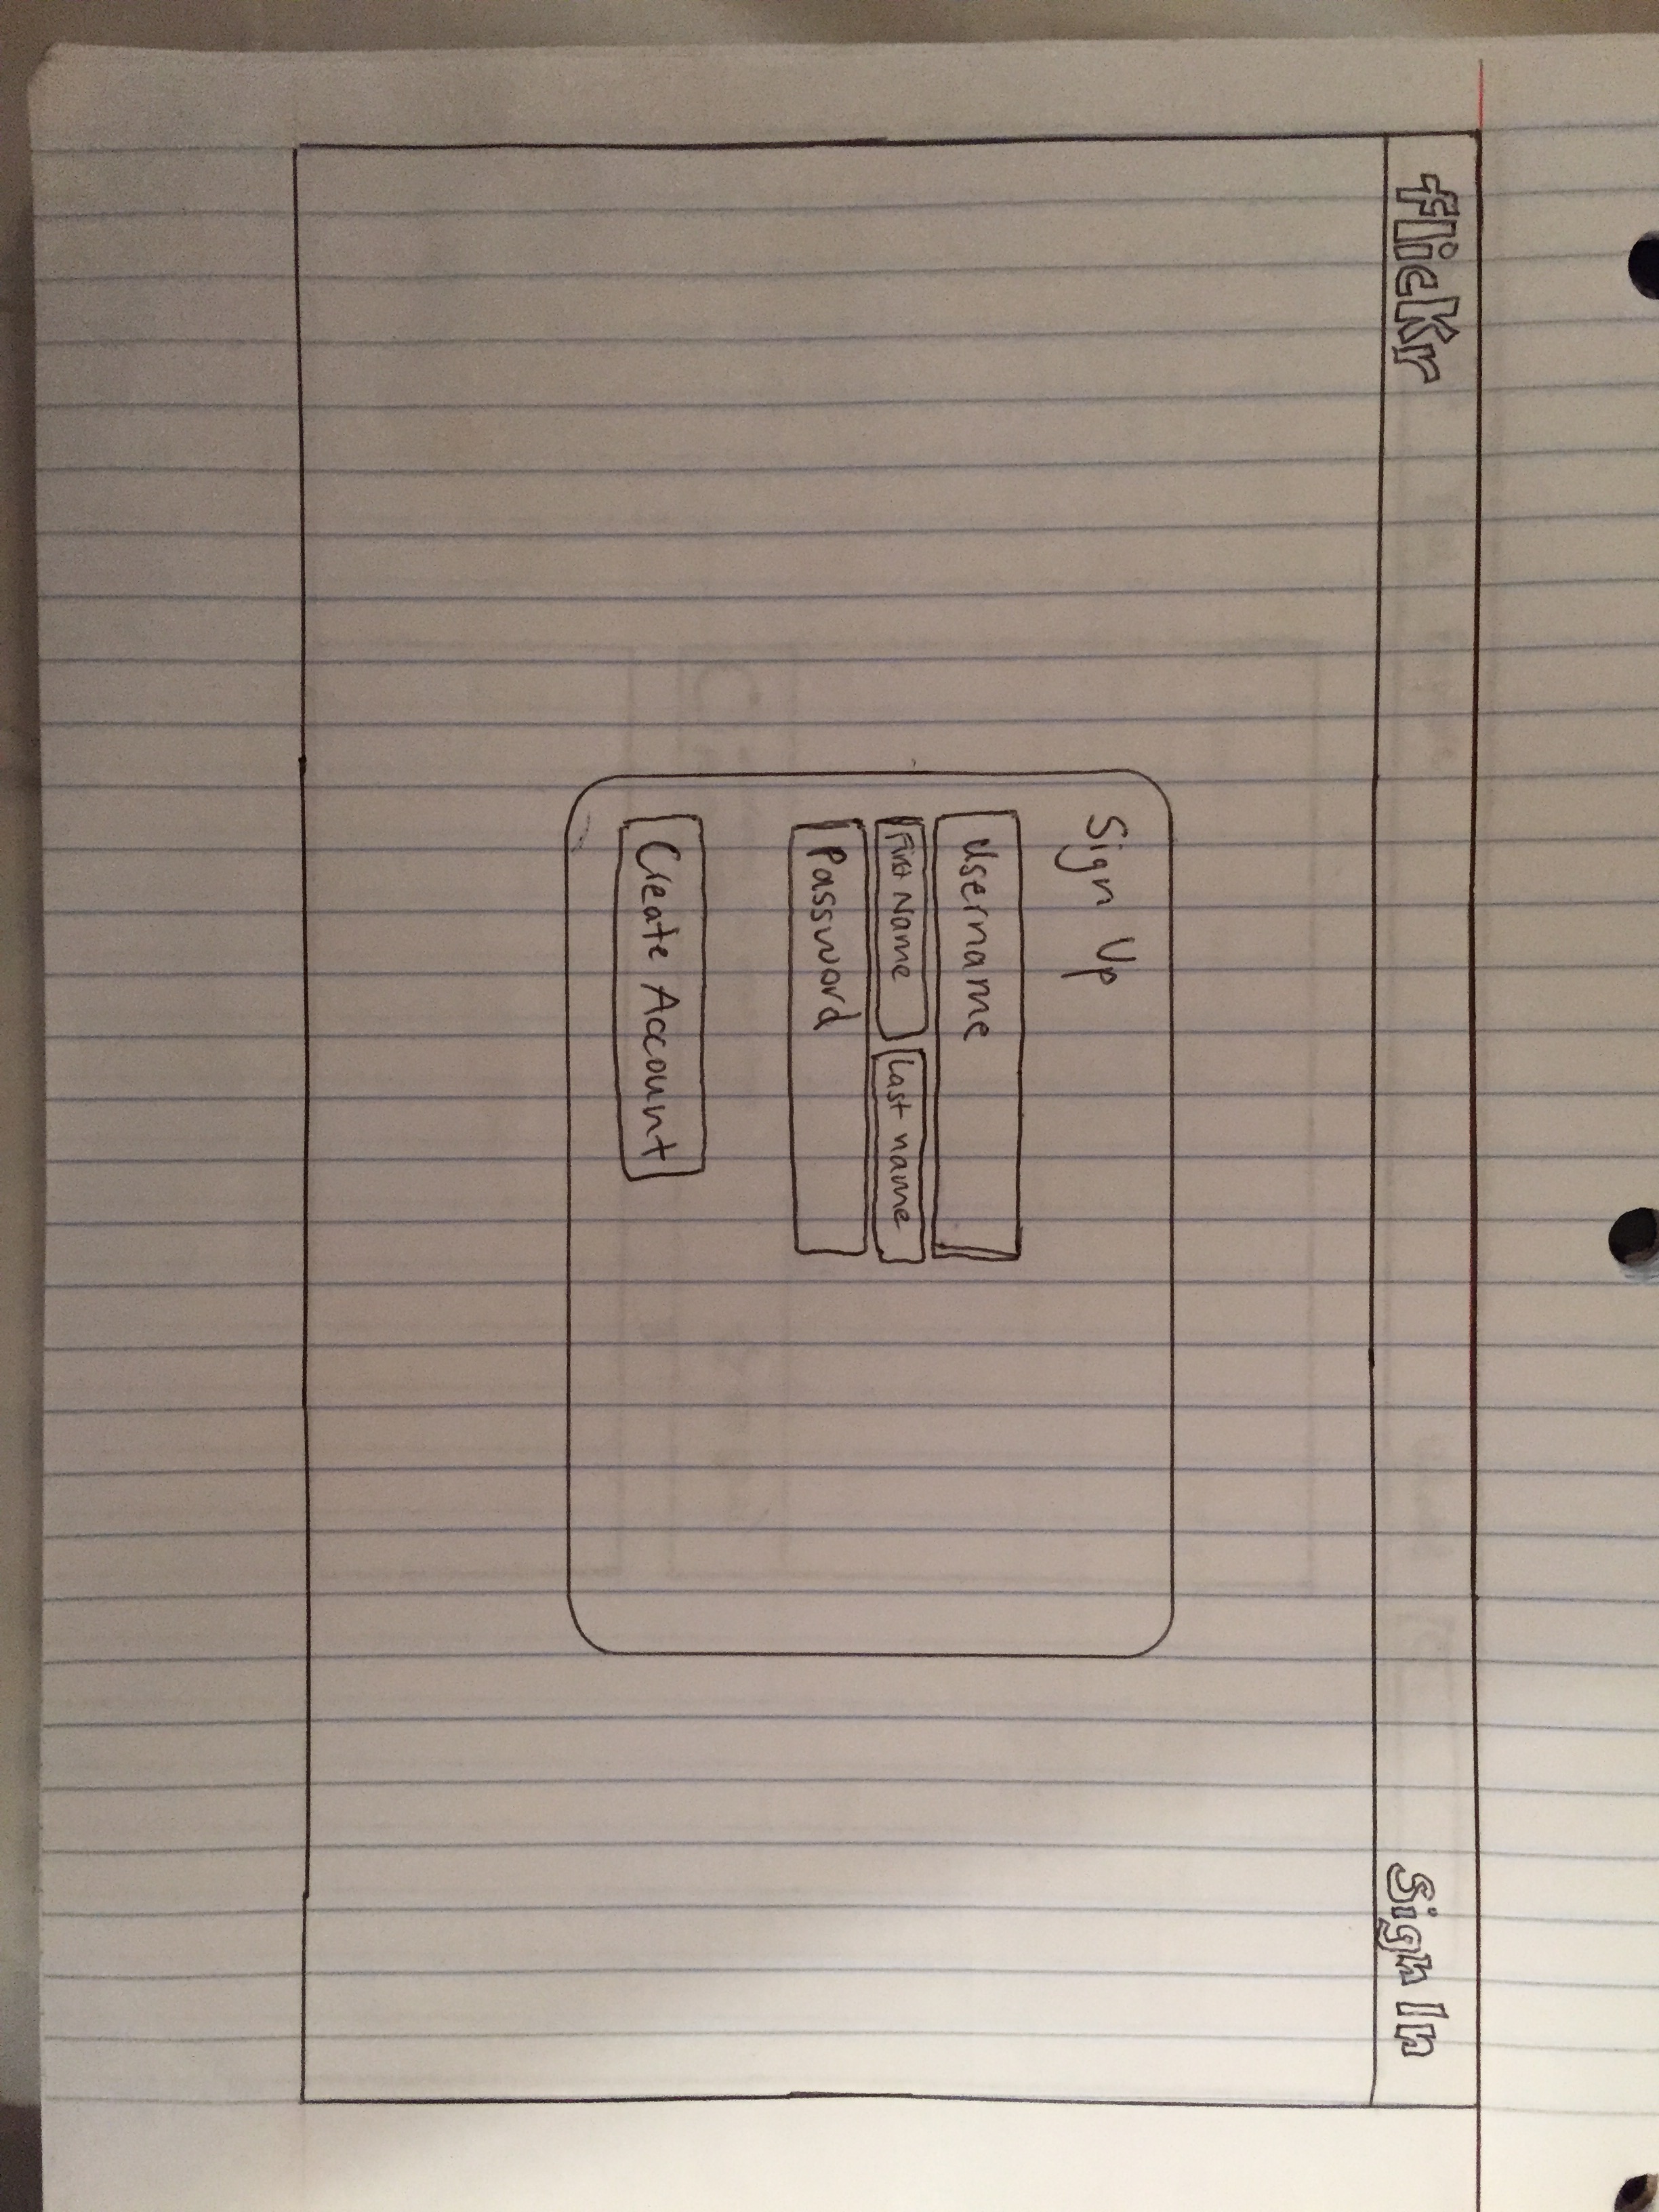 flickr
Sign In
Sign Up
Username
First Name
Last name
Password
Create Account